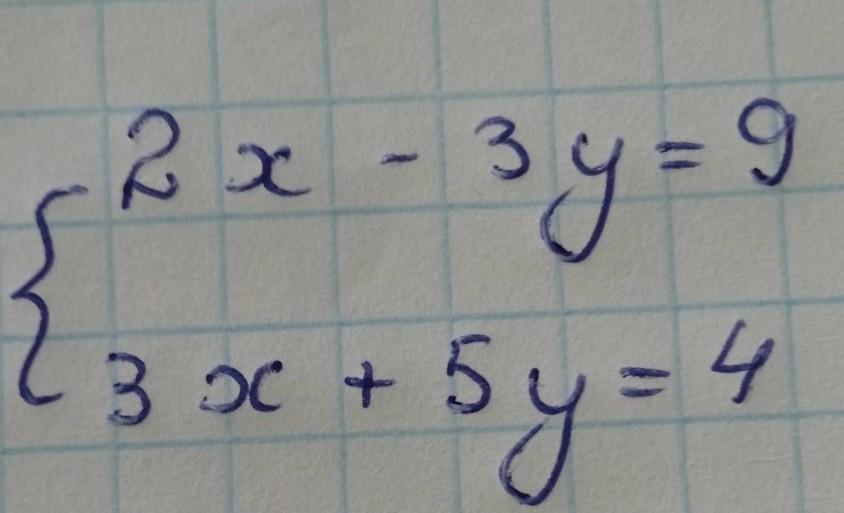 2x - 3y = 9
3x + 5y = 4